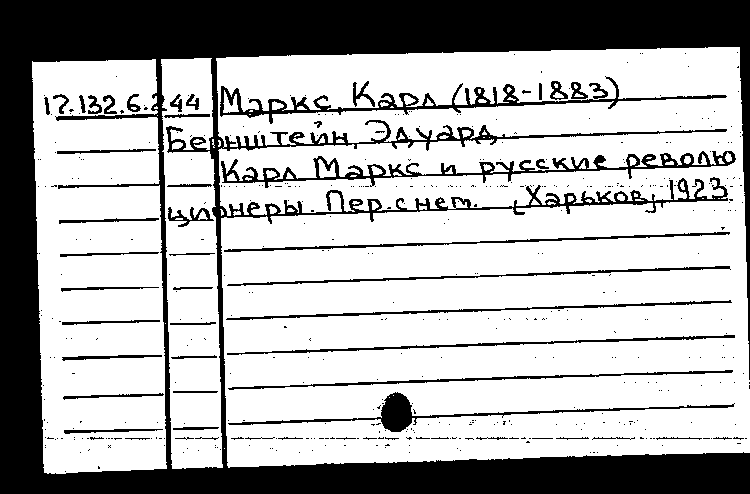 17.132.6.244 Маркс, Карл (1818-1883)
Бернштейн, Эдуард.
Карл Маркс и русские револю
ционеры. Пер. с нем. [Харьков], 1923